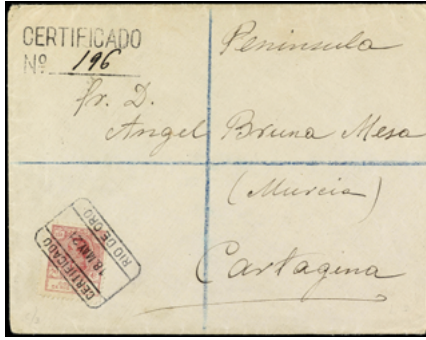 CERTIFICADO
Nº 196
Peninsula
Sr. D.
Angel Bruna Mesa
(Murcia)
Cartagena
CERTIFICADO
18 MAY 21
RIO DE ORO